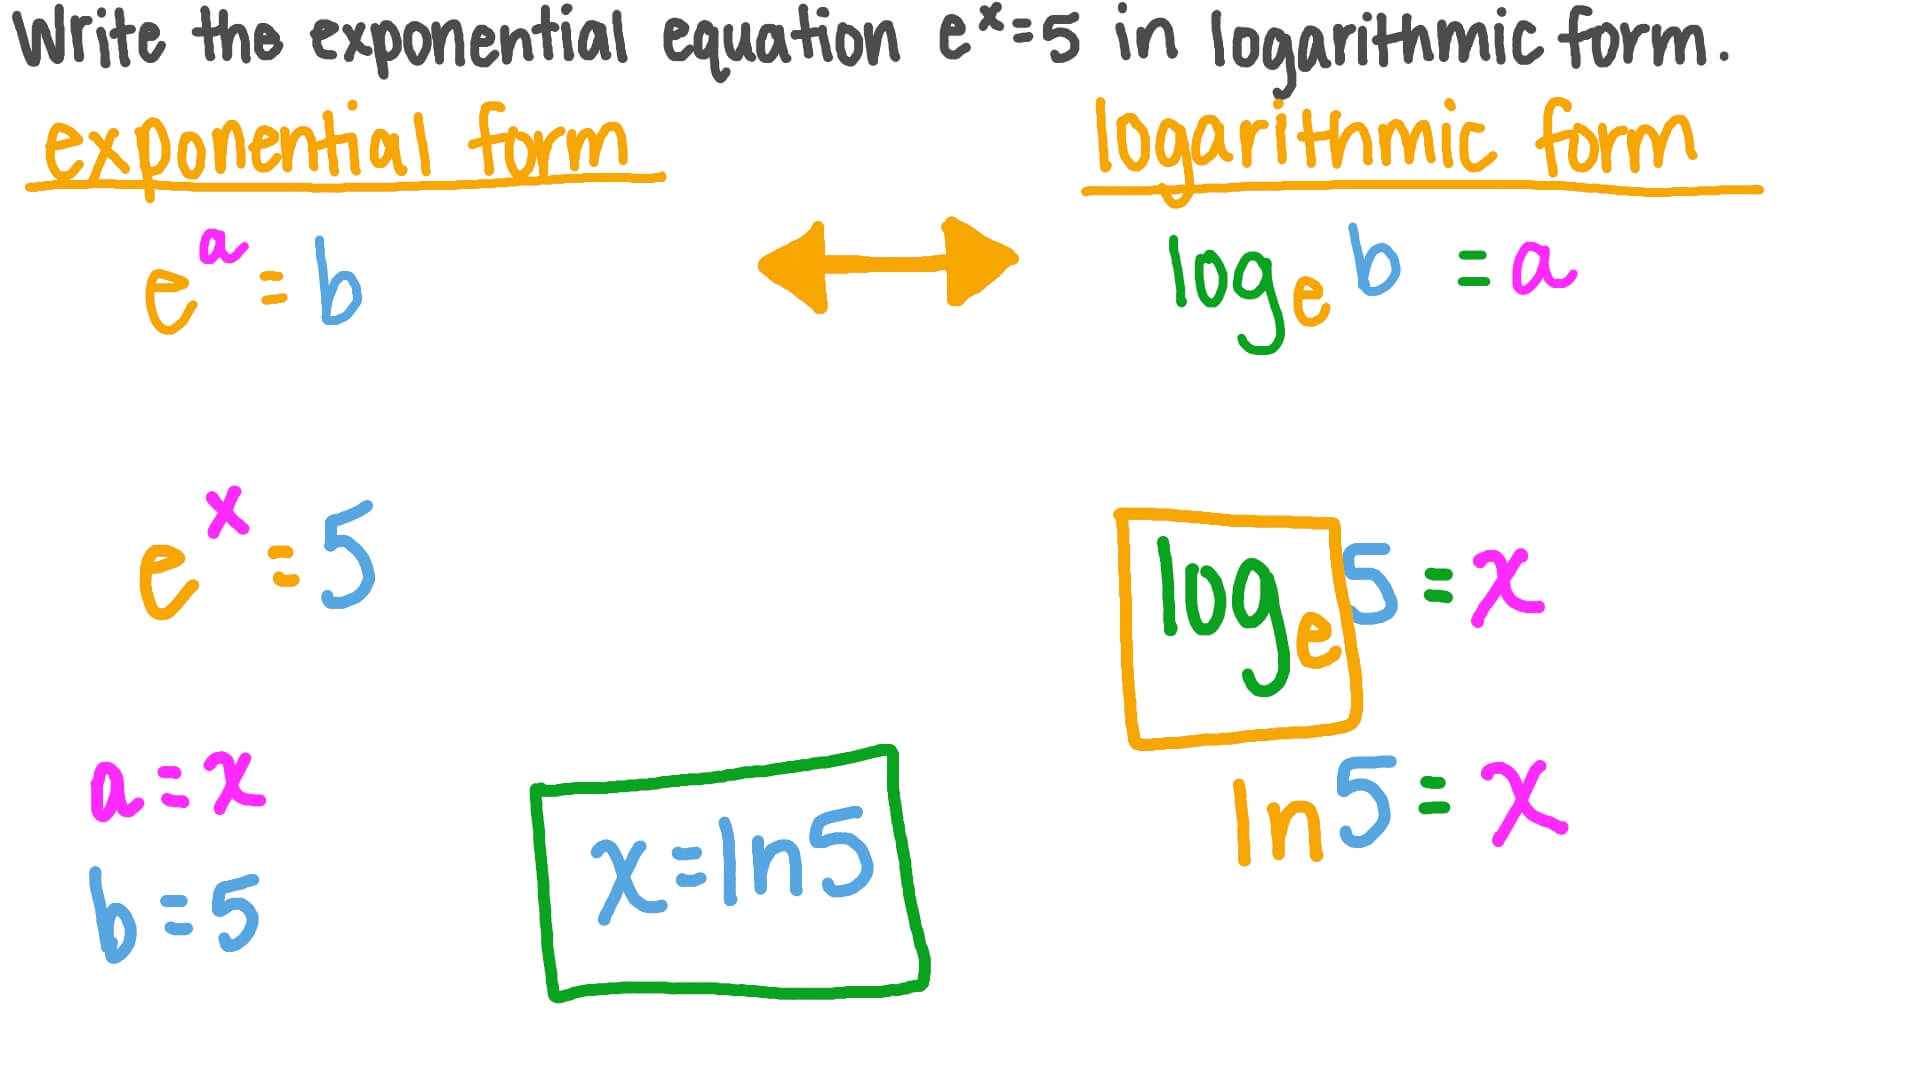 Write the exponential equation eˣ=5 in logarithmic form.
exponential form
logarithmic form
eᵃ = b
logₑ b = a
eˣ = 5
logₑ 5 = x
a = x
ln 5 = x
x = ln 5
b = 5